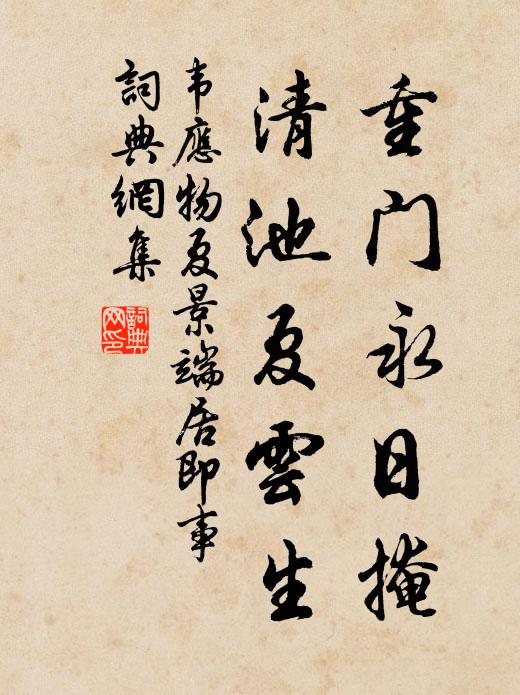 重門永日掩
清池夏雲生
韦應物夏景端居即事
詞典網集
詞典网印